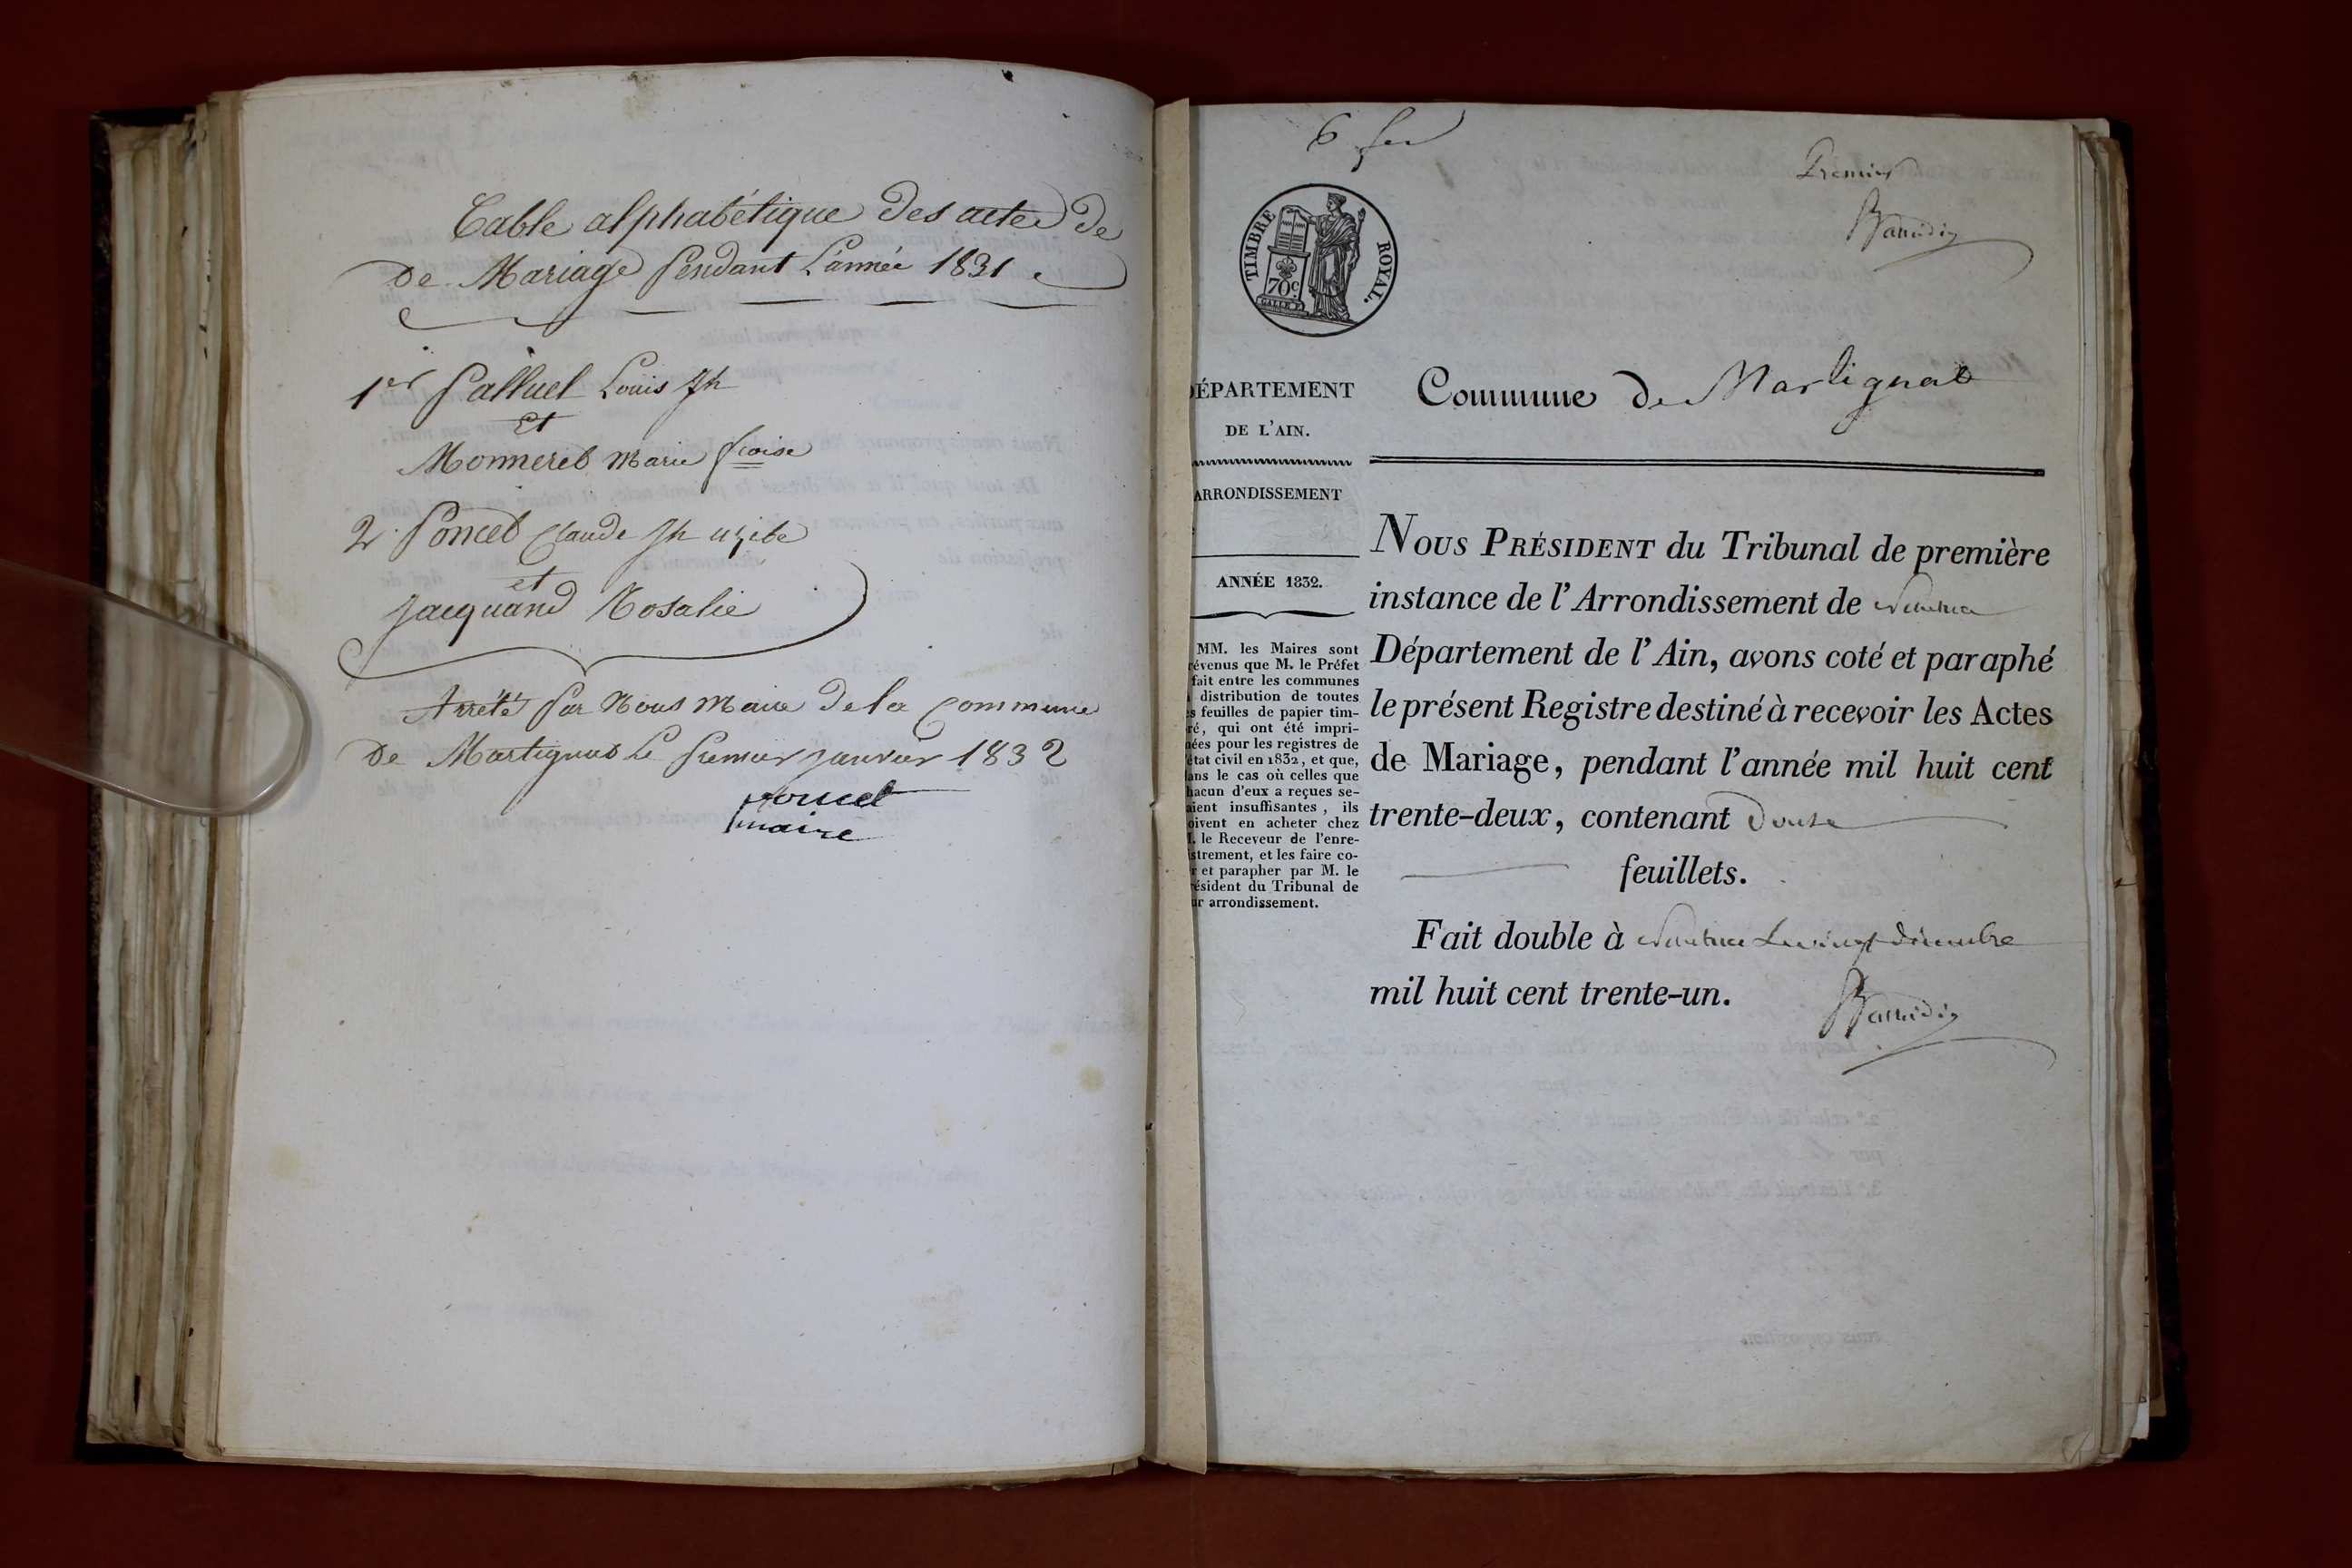 Table alphabétique des actes de
de Mariage pendant L'année 1831
1er Palluel Louis Jh
Et
Monneret Marie fcoise
2. Poncet Claude Jh
et
Jacquand Rosalie
Arrêté par Nous Maire de la Commune
de Martignat le premier janvier 1832
Poncet
maire
6 fer
Premier
TIMBRE ROYAL.
70c
GALLE F.
Commune de Martignat
ÉPARTEMENT
DE L'AIN.
ARRONDISSEMENT
ANNÉE 1832.
MM. les Maires sont
révenus que M. le Préfet
fait entre les communes
distribution de toutes
s feuilles de papier tim-
ré, qui ont été impri-
ées pour les registres de
état civil en 1832, et que,
ans le cas où celles que
hacun d'eux a reçues se-
aient insuffisantes, ils
oivent en acheter chez
. le Receveur de l'enre-
strement, et les faire co-
r et parapher par M. le
résident du Tribunal de
ur arrondissement.
NOUS PRÉSIDENT du Tribunal de première
instance de l'Arrondissement de Nantua
Département de l'Ain, avons coté et paraphé
le présent Registre destiné à recevoir les Actes
de Mariage, pendant l'année mil huit cent
trente-deux, contenant Douze
feuillets.
Fait double à Nantua Le vingt décembre
mil huit cent trente-un.